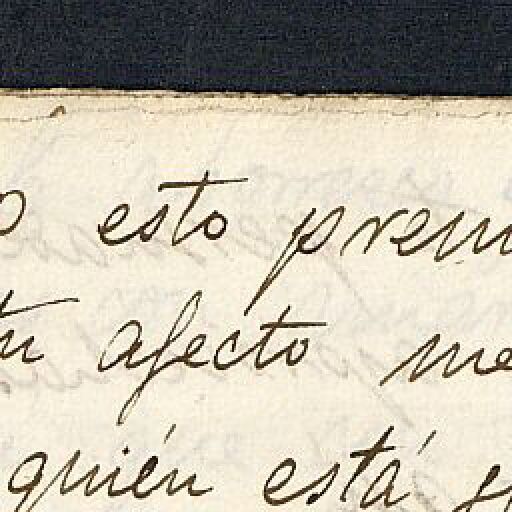 esto prem
tu afecto me
quién está